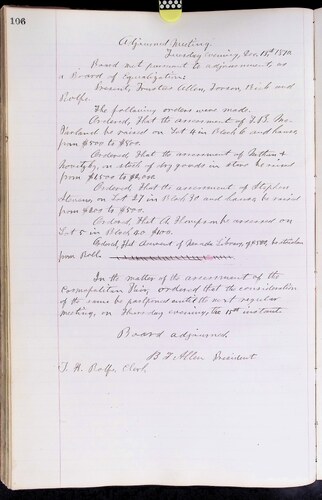 106
Adjourned Meeting.
Tuesday evening, Dec.
Board met pursuant to adjournment, as
a Board of Equalization.
Present, Trustees Allen, Bick and
Rolfe.
The following orders were made.
Ordered, That the assessment of
be raised on Lot 4 in Block 6 and house,
from $500 to $800.
Ordered, That the assessment of
on stock of dry goods in store be raised
from
Ordered, That the assessment of Stephen
on Lot 27 in Block 30 and house be raised
from to $500.
Ordered, That A. be assessed on
Lot 5 in Block 40 $100.
Ordered, That Account of Library, of be stricken
from Roll.
In the matter of the assessment of the
Cosmopolitan ordered that the consideration
of the same be postponed until the next regular
meeting, on Thursday evening, the instant.
Board adjourned.
B F Allen President
I. H. Rolfe Clerk.